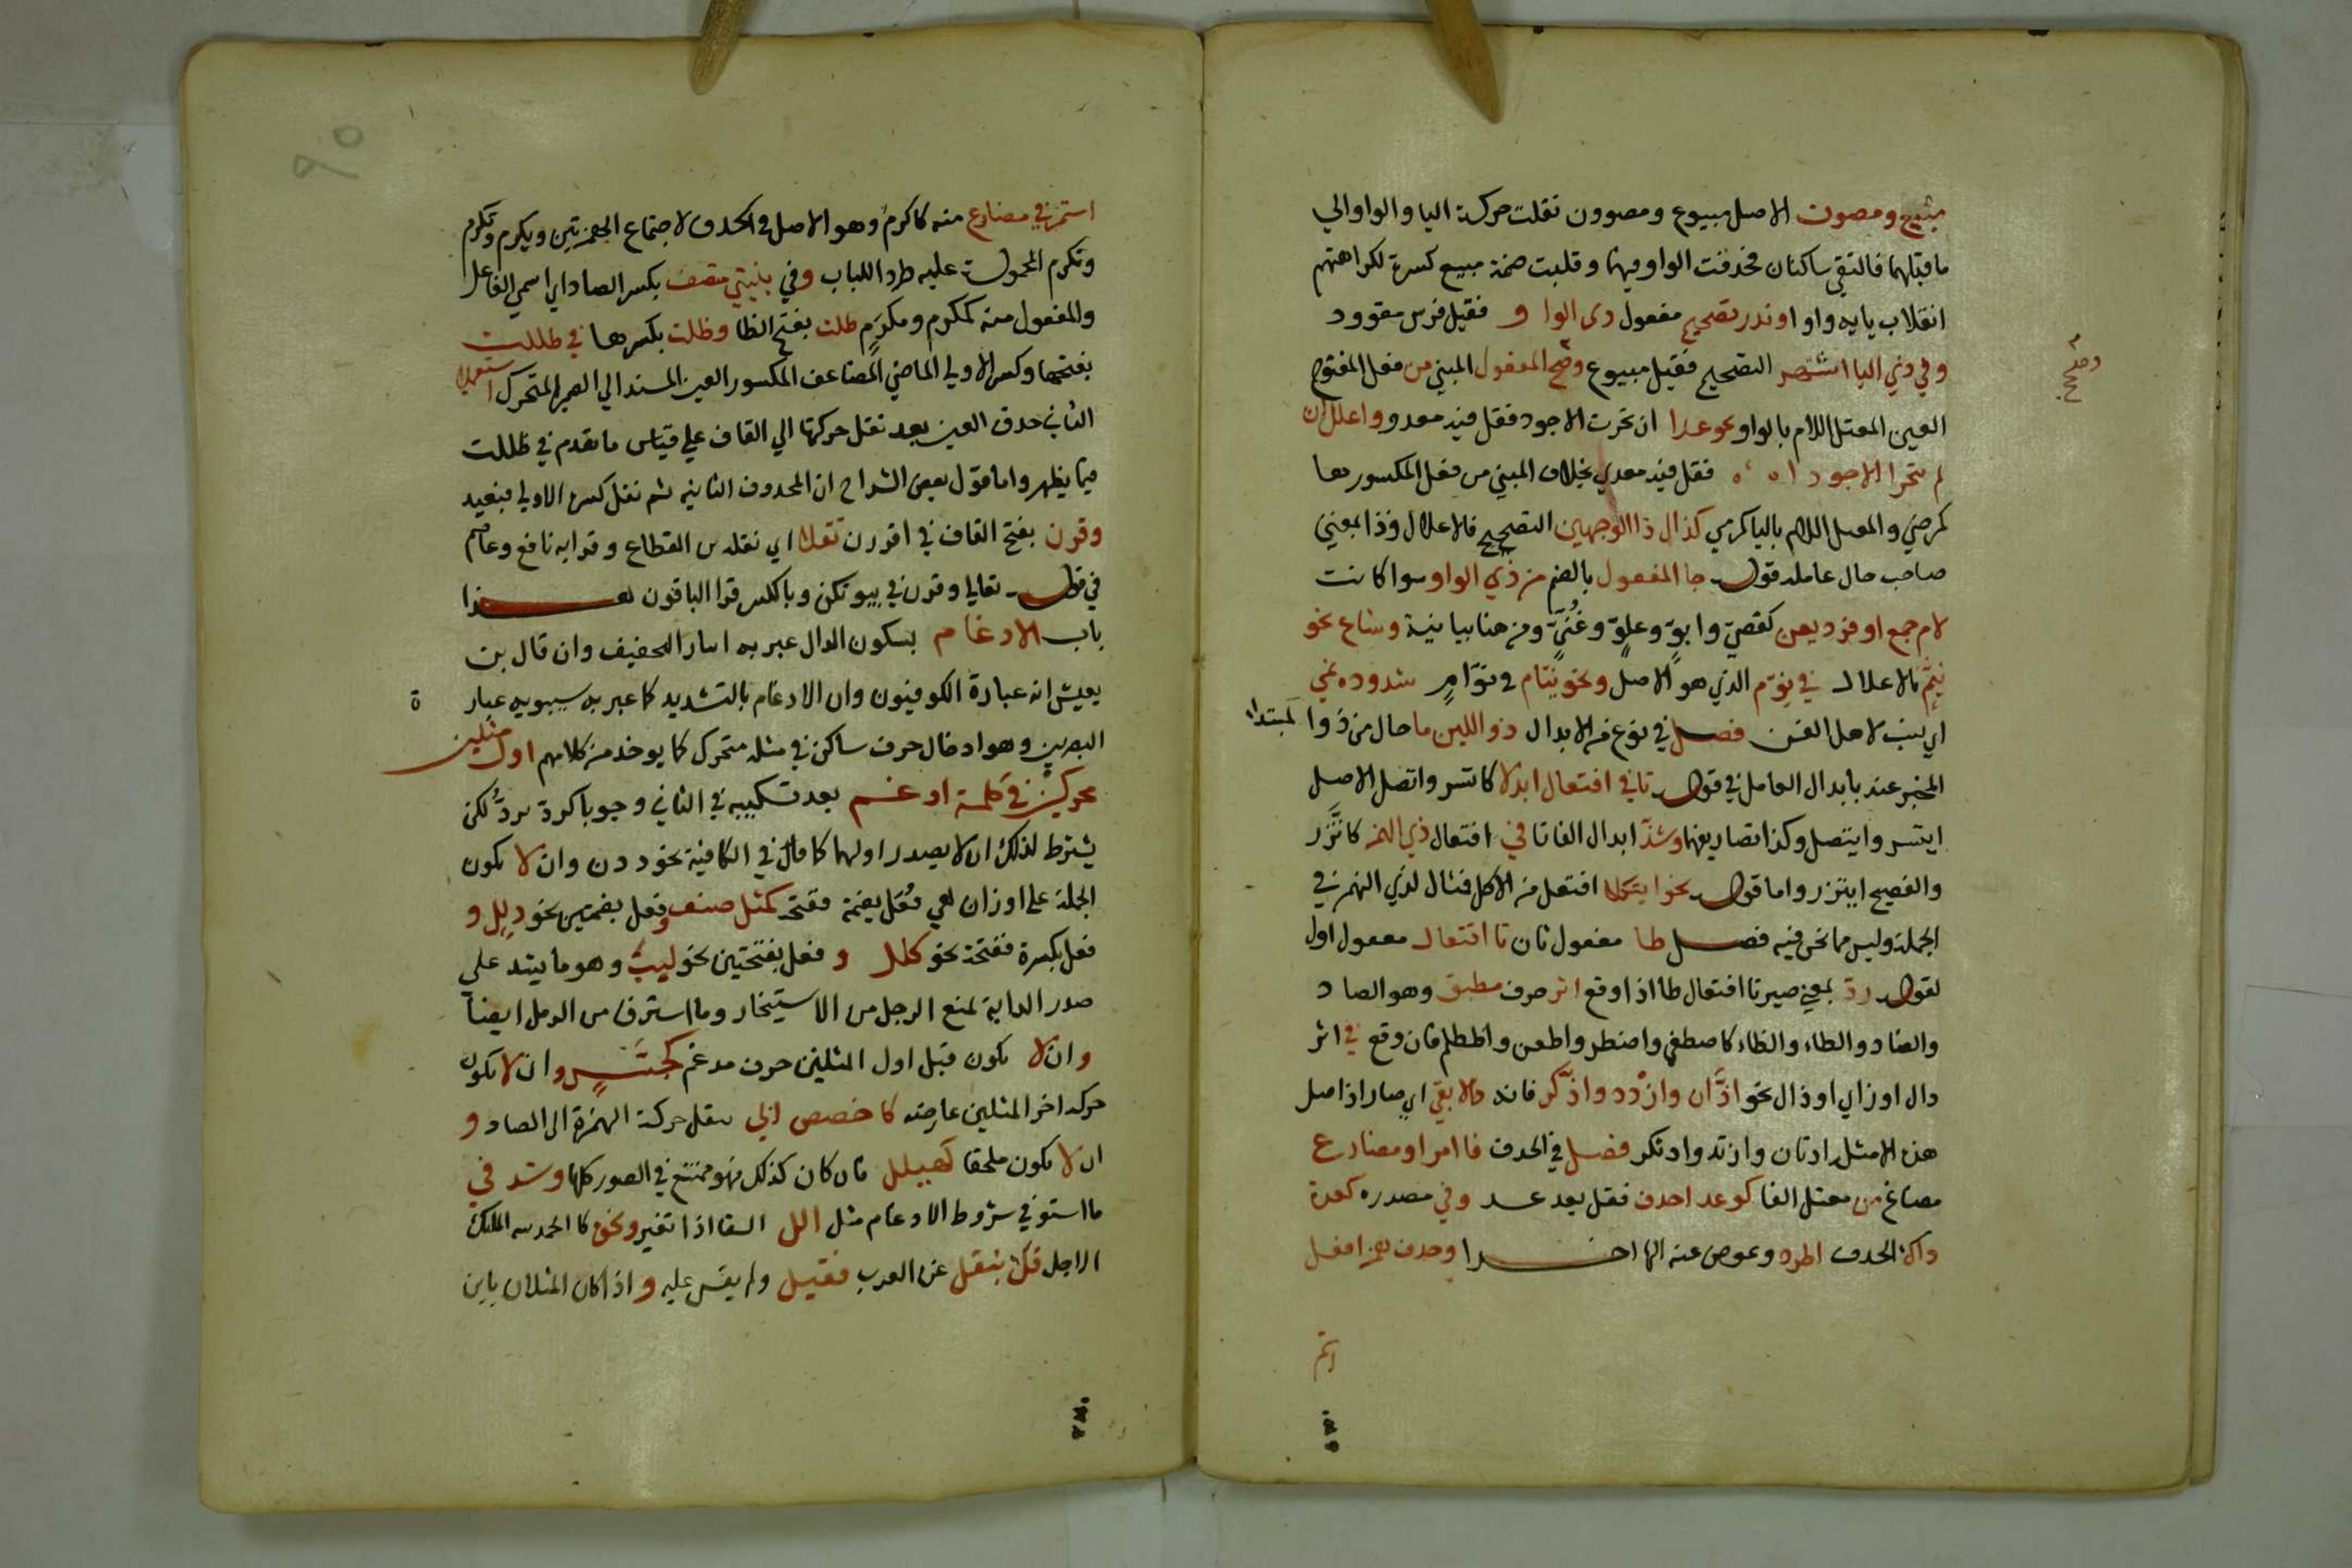 مبيع ومصون الاصل مبيوع ومصوون نقلت حركة اليا والواو الي
ما قبلهما فالتقي ساكنان فحذفت الواو فيهما وقلبت ضمة مبيع كسرة لكراهتهم
انقلاب يايه واوا وندر تصحيح مفعول ذي الواو فقيل فرس مقوود
وفي ذي اليا اشتهر التصحيح فقيل مبيوع وصح المفعول المبني من فعل المفتوح
العين المعتل اللام بالواو نحو عدا ان تحرت الاجود فقل فيه معدو واعلل ان
لم تتحرا الاجودا فقل فيه معدي بخلاف المبني من فعل المكسورها
كمرضي والمعتل اللام باليا كرمي كذاك ذا الوجهين التصحيح فالاعلال وذا بمعني
صاحب حال عامله قوله جا المفعول بالضم من ذي الواو سوا كانت
لام جمع او فرد يعن كعصيّ وابوّ وعلوّ وعُتيّ ومن هنا بيانية وشاع نحو
نيّم بالاعلال في نوّم الذي هو الاصل ونحو نيّام في نوّام شذوذه نمي
اي نسب لاهل الفن فصل في نوع من الابدال ذو اللين فا حال من ذو المبتدا
المخبر عنه بابدال العامل في قوله تا في افتعال ابدلا كاتسر واتصل الاصل
ايتسر وايتصل وكذا تصاريفهما وشذّ ابدال الفا تا في افتعال ذي الهمز كاتّزر
والفصيح ايتزر واما قوله نحو ايتكلا افتعل من الاكل فمثال لذي الهمز في
الجملة وليس مما نحن فيه فصل طا مفعول ثان تا افتعال مفعول اول
لقوله ردّ بمعني صير تا افتعال طا اذا وقع اثر حرف مطبق وهو الصاد
والضاد والطاء والظاء كاصطفي واضطر واطعن واظطلم فان وقع في اثر
دال او زاي او ذال نحو ادّان وازدد وادّكر فانه دالا بقي اي صار اذ اصل
هذه الامثلة ادتان وازتد واذتكر فصل في الحذف فا امر او مضارع
مصاغ من معتل الفا كوعد احذف فقل يعد عد وفي مصدره كعدة
ذاك الحذف اطرد وعوض عنه الها اخرا وحذف همز افعل
وصح
صح
استمر في مضارع منه كاكرم وهو الاصل في الحذف لاجتماع الهمزتين ويكرم ونكرم
وتكرم المحمولة عليه طرد اللباب وفي بنيتي متصف بكسر الصاد اي اسمي الفاعل
والمفعول منه كمكرم ومكرَم ظلت بفتح الظا وظلت بكسرها في ظللت
بفتحها وكسر الاولي الماضي المضاعف المكسور العين المسند الي الضمير المتحرك استعملا
الثاني حذف العين بعد نقل حركتها الي القاف علي قياس ما تقدم في ظللت
فيما يظهر واما قول بعض الشراح ان المحذوف الثانية ثم نقل كسر الاولي فبعيد
وقرن بفتح القاف في اقررن نقلا اي نقله بن القطاع وقرا به نافع وعاصم
في قوله تعالي وقرن في بيوتكن وبالكسر قرا الباقون هذا
باب الادغام بسكون الدال عبر به ايثارا للتخفيف وان قال بن
يعيش انه عبارة الكوفيون وان الادغام بالتشديد كما عبر به سيبويه عبارة
البصريين وهو ادخال حرف ساكن في مثله متحرك كما يوخذ من كلامهم اول مثلين
محركين في كلمة ادغم بعد تسكينه في الثاني وجوبا كردّ يردّ لكن
يشترط لذلك ان لا يصدر اولهما كما قال في الكافية نحو ددن وان لا يكون
الجملة علي اوزان هي فُعَل بضمة ففتحة كمثل صفف وفعل بضمتين نحو ذلل و
فعل بكسرة ففتحة نحو كلل و فعل بفتحتين نحو لبب وهو ما يشد علي
صدر الدابة لمنع الرحل من الاستيخار وما استرق من الرمل ايضا
وان لا يكون قبل اول المثلين حرف مدغم كجسّس وان لا يكون
حركة اخر المثلين عارضة كاخصص ابي بنقل حركة الهمزة الي الصاد و
ان لا يكون ملحقا كهيلل فان كان كذلك فهو ممتنع في الصور كلها وشذ في
ما استوفي شروط الادغام مثل الل السقا اذا تغير ونحو كا الحمد لله الملك
الاجلل فك بنقل عن العرب فقبل ولم يقس عليه و اذا كان المثلان يايين